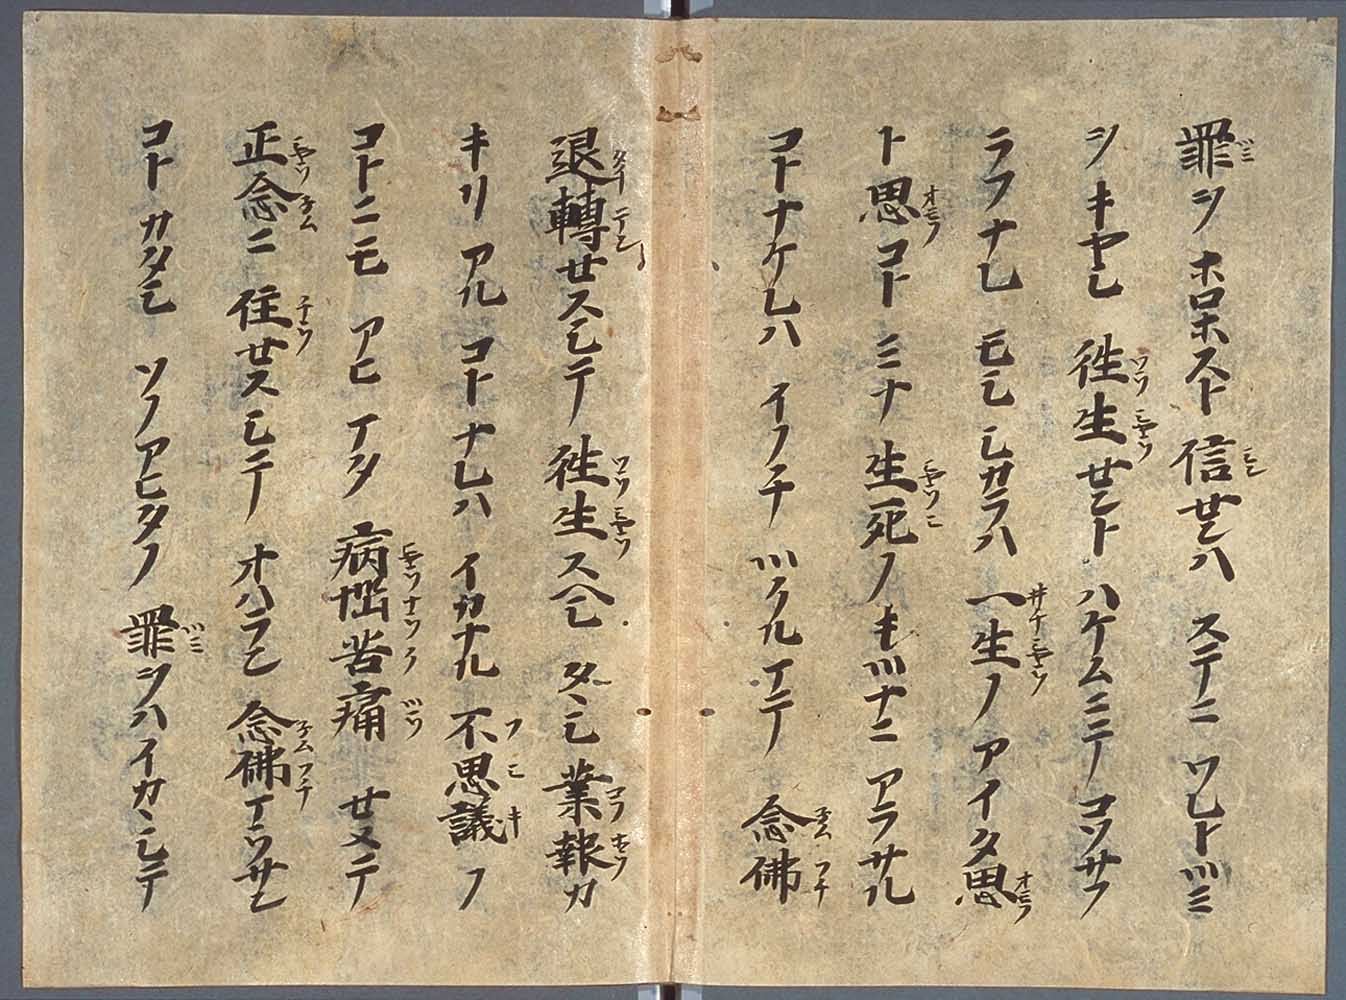 罪ヲホロホスト信センハ ステニワレトツミ
ヲキヤシ 往生セントハケムニテコソサフ
ラフナレ モシシカラハ 一生ノアイタ思
ト思コトミナ生死ノキツナニアラサル
コトナケレハ イノチツクルマテ 念佛
退轉セスシテ往生スヘシ タヽシ業報カ
キリアルコトナレハ イカナル不思議ノ
コトニモアヒマタ病惱苦痛セメテ
正念ニ住セスシテオハラン 念佛マウサン
コトカタシ ソノアヒタノ罪ヲハイカヽシテ